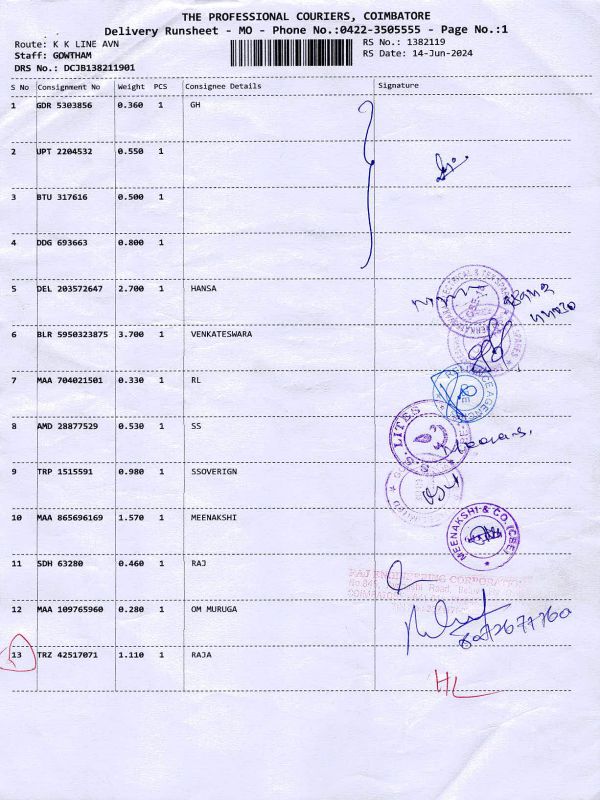 THE PROFESSIONAL COURIERS, COIMBATORE
Delivery Runsheet - MO - Phone No.:0422-3505555 - Page No.:1
Route: K K LINE AVN
RS No.: 1382119
Staff: GOWTHAM
RS Date: 14-Jun-2024
DRS No.: DCJB138211901
S No Consignment No Weight PCS Consignee Details Signature
1 GDR 5303856 0.360 1 GH
2 UPT 2204532 0.550 1
3 BTU 317616 0.500 1
4 DDG 693663 0.800 1
5 DEL 203572647 2.700 1 HANSA
6 BLR 5950323875 3.700 1 VENKATESWARA
7 MAA 704021501 0.330 1 RL
8 AMD 28877529 0.530 1 SS
S.S. LITES
9 TRP 1515591 0.980 1 SSOVERIGN
10 MAA 865696169 1.570 1 MEENAKSHI
MEENAKSHI & CO. (CBE)
11 SDH 63280 0.460 1 RAJ
RAJ ENGINEERING CORPORATION
12 MAA 109765960 0.280 1 OM MURUGA
13 TRZ 42517071 1.110 1 RAJA
HL